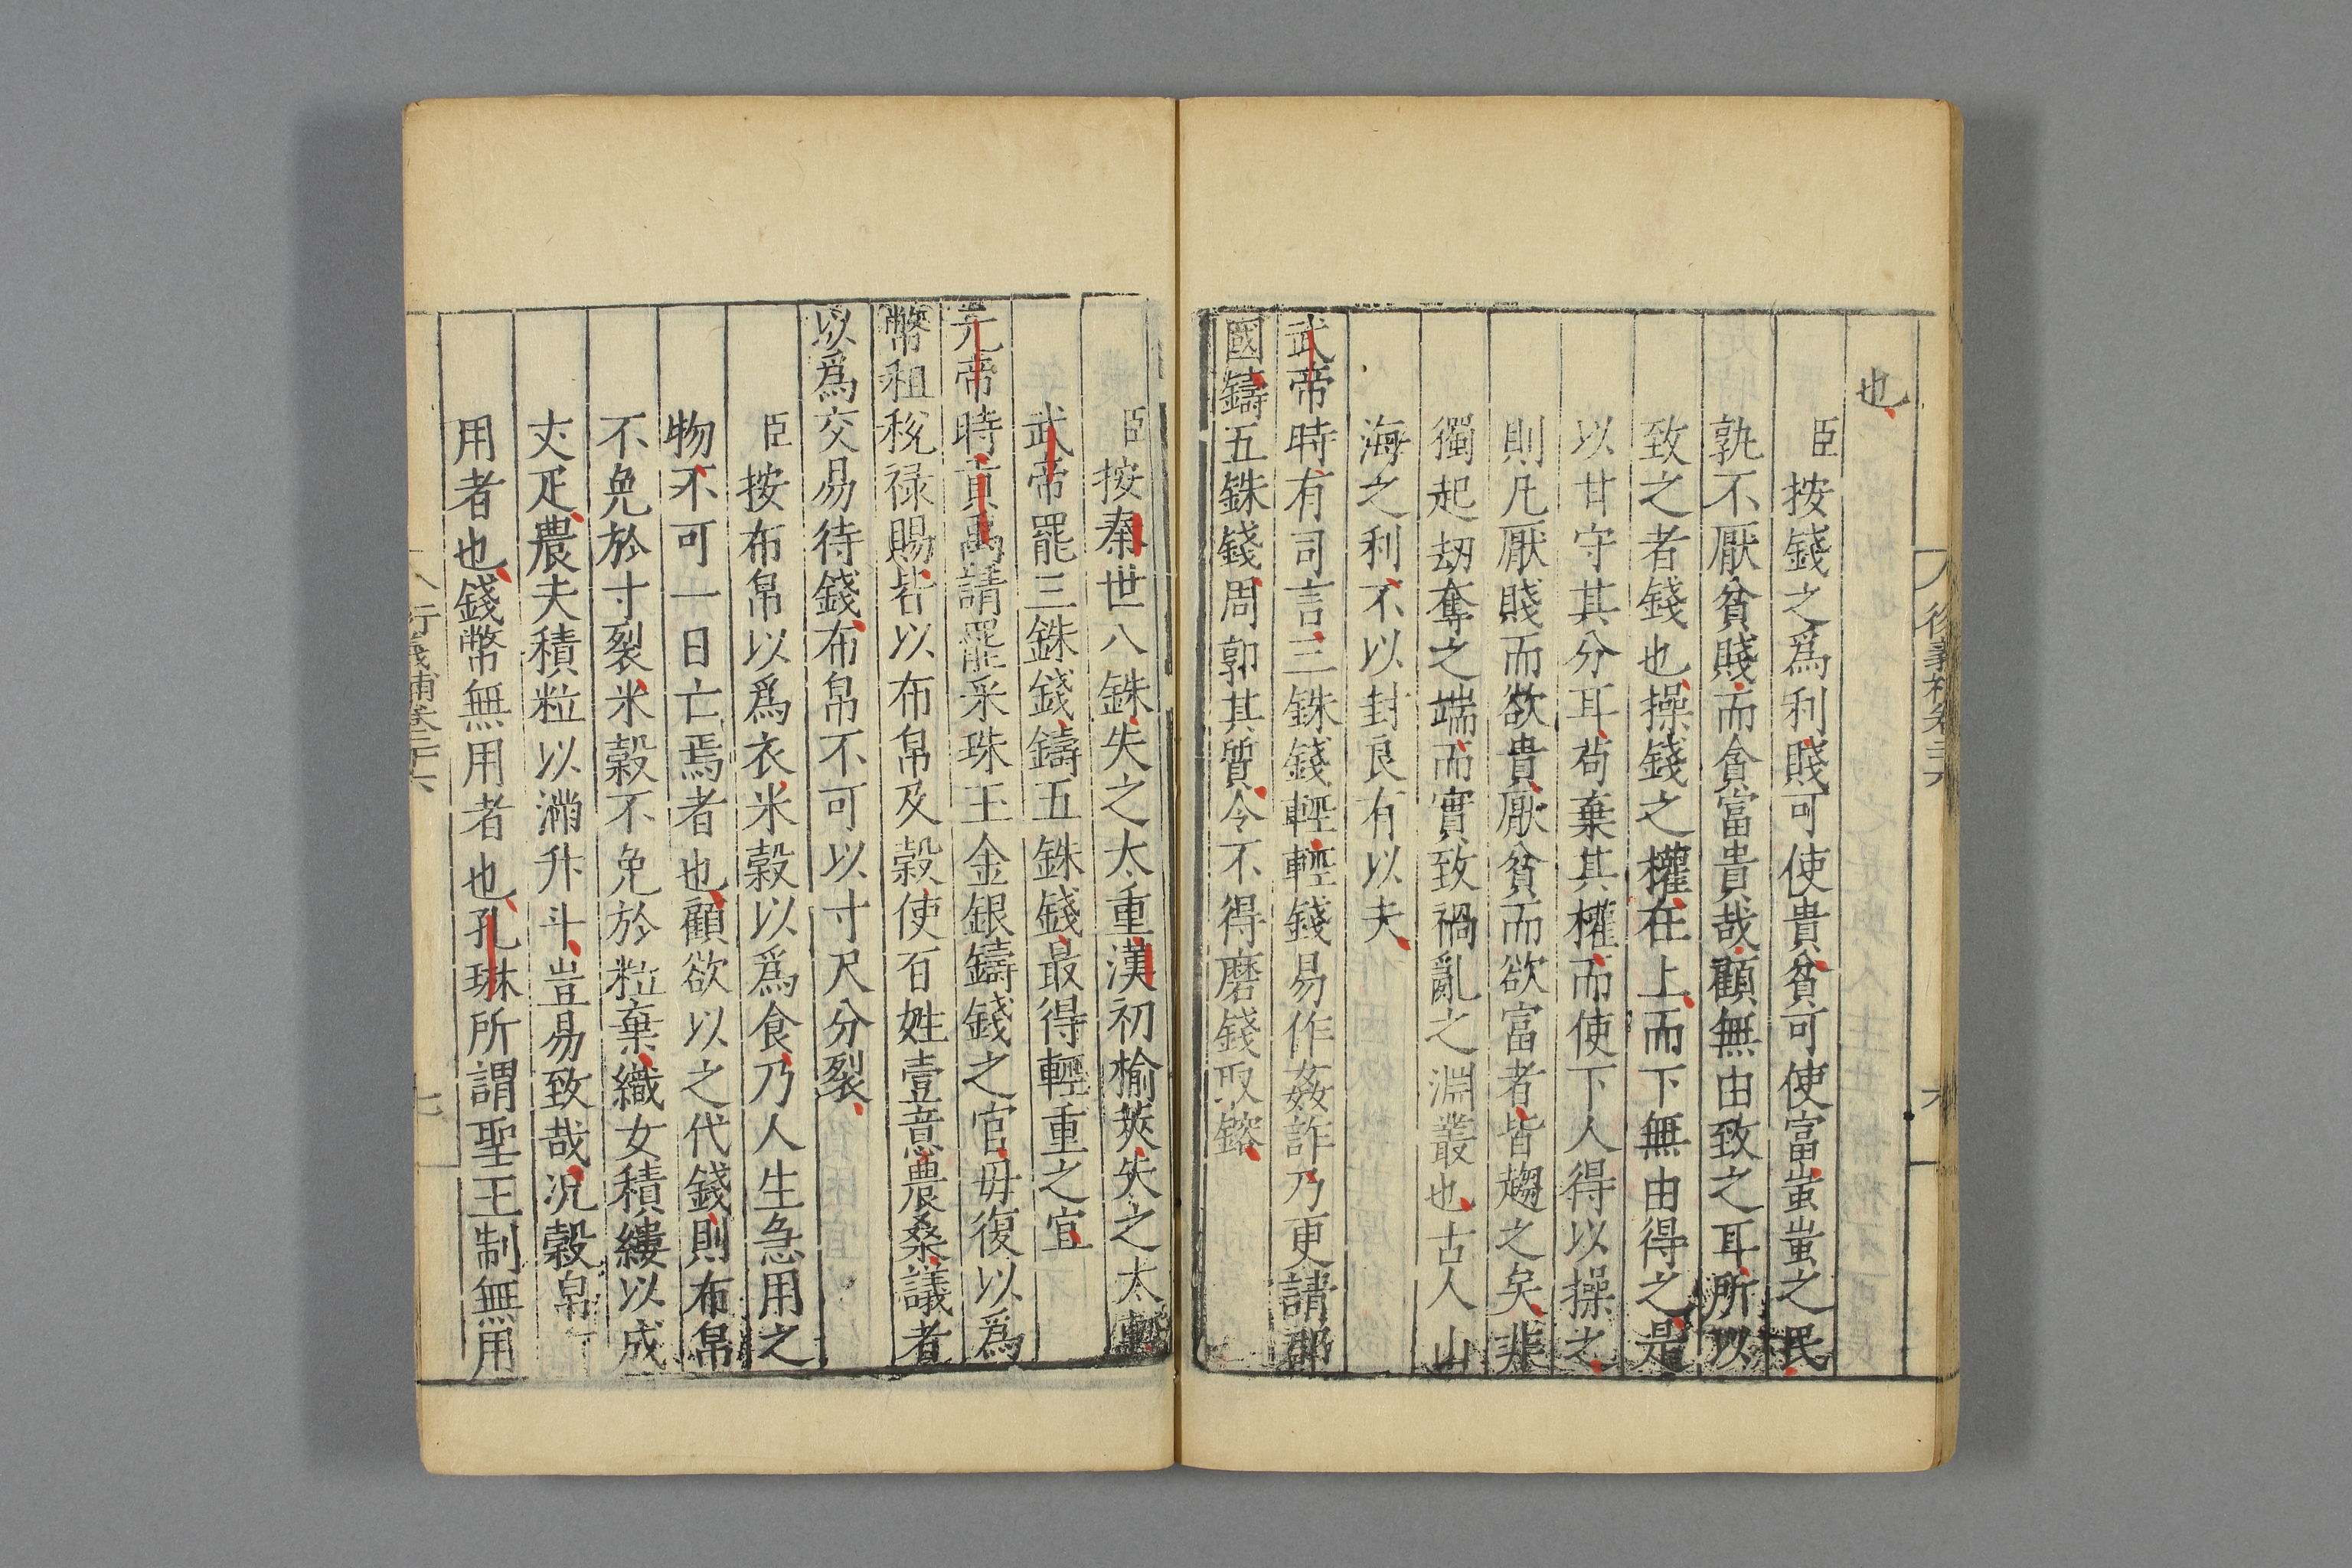 也
臣按錢之爲利賤可使貴貧可使富蚩蚩之民
孰不厭貧賤而貪富貴哉顧無由致之耳所以
致之者錢也操錢之權在上而下無由得之是
以甘守其分耳苟棄其權而使下人得以操之
則凡厭賤而欲貴厭貧而欲富者皆趨之矣非
獨起劫奪之端而實致禍亂之淵叢也古人山
海之利不以封良有以夫
武帝時有司言三銖錢輕輕錢易作姦詐乃更請郡
國鑄五銖錢周郭其質令不得磨錢取鎔
臣按秦世八銖失之太重漢初榆莢失之太輕
武帝罷三銖錢鑄五銖錢最得輕重之宜
元帝時貢禹請罷采珠玉金銀鑄錢之官毋復以爲
幣租稅祿賜皆以布帛及穀使百姓壹意農桑議者
以爲交易待錢布帛不可以寸尺分裂
臣按布帛以爲衣米穀以爲食乃人生急用之
物不可一日亡焉者也顧欲以之代錢則布帛
不免於寸裂米穀不免於粒棄織女積縷以成
丈疋農夫積粒以滿升斗豈易致哉況穀帛
用者也錢幣無用者也孔琳所謂聖王制無用